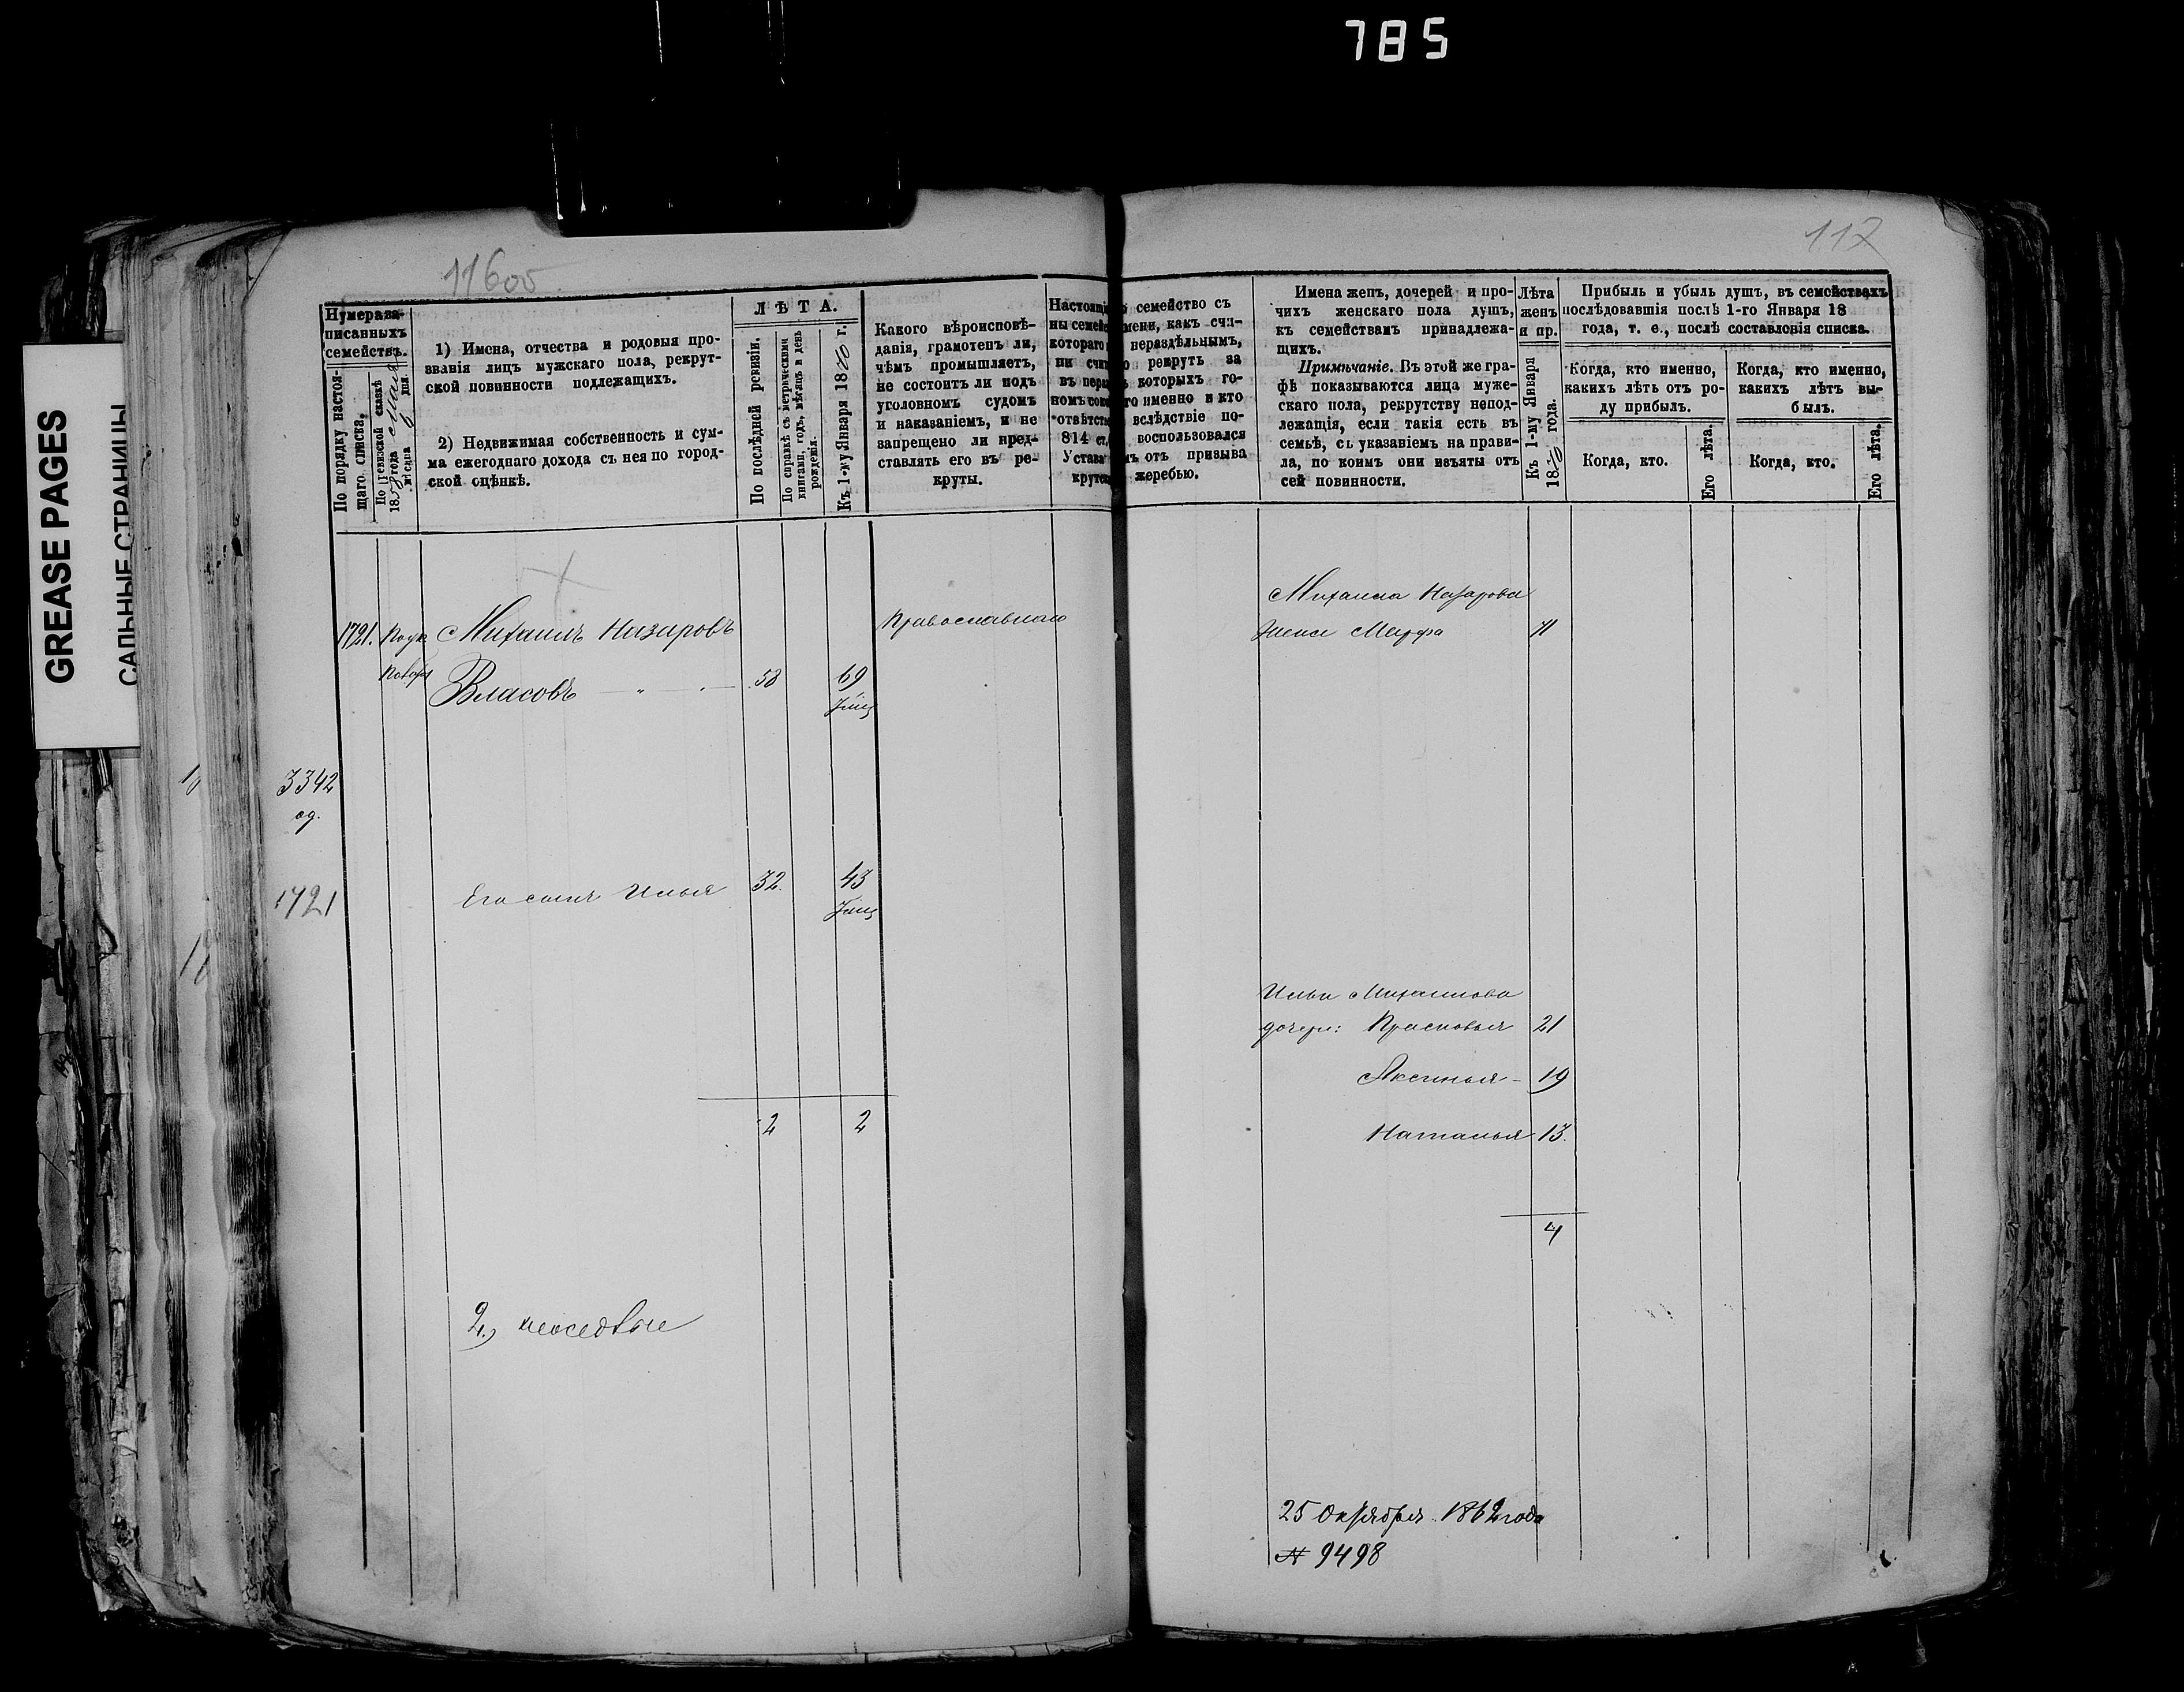 785
GREASE PAGES
САЛЬНЫЕ СТРАНИЦЫ
117
11600
Нумера за-
писанныхъ
семействъ.
По порядку настоя-
щаго списка.
По ревизской сказкѣ
1858 года
мѣсяца дня.
1) Имена, отчества и родовыя про-
званія лицъ мужскаго пола, рекрут-
ской повинности подлежащихъ.
2) Недвижимая собственность и сум-
ма ежегоднаго дохода съ нея по город-
ской оцѣнкѣ.
ЛѢТА.
По послѣдней ревизіи.
По справкѣ съ метрическими
книгами, годъ, мѣсяцъ и день
рожденія.
Къ 1-му Января 1870 г.
Какого вѣроисповѣ-
данія, грамотенъ ли,
чѣмъ промышляетъ,
не состоитъ ли подъ
уголовномъ судомъ
и наказаніемъ, и не
запрещено ли пред-
ставлять его въ ре-
круты.
семейство съ
мени, какъ счи-
нераздѣльнымъ,
рекрутъ за
которыхъ го-
го именно и кто
вслѣдствіе по-
воспользовался
мъ отъ призыва
жеребью.
Имена женъ, дочерей и про-
чихъ женскаго пола душъ,
къ семействамъ принадлежа-
щихъ.
Примѣчаніе. Въ этой же гра-
фѣ показываются лица муже-
скаго пола, рекрутству непод-
лежащія, если такія есть въ
семьѣ, съ указаніемъ на прави-
ла, по коимъ они изъяты отъ
сей повинности.
Лѣта
женъ
и пр.
Къ 1-му Января
1870 года.
Прибыль и убыль душъ, въ семействахъ
послѣдовавшія послѣ 1-го Января 18
года, т. е., послѣ составленія списка.
Когда, кто именно,
какихъ лѣтъ отъ ро-
ду прибылъ.
Когда, кто именно,
какихъ лѣтъ вы-
былъ.
Когда, кто.
Его лѣта.
Когда, кто.
Его лѣта.
1721. Михаилъ Назаровъ
Власовъ 58 69
Православнаго
3342
1721
Его сынъ Илья 32. 43
2 2
Михаила Назарова
жена Марфа
Ильи Михаилова
дочери: Прасковья 21
Аксинья 19
Наталья 13.
4
25 Октября 1862 года
№ 9498